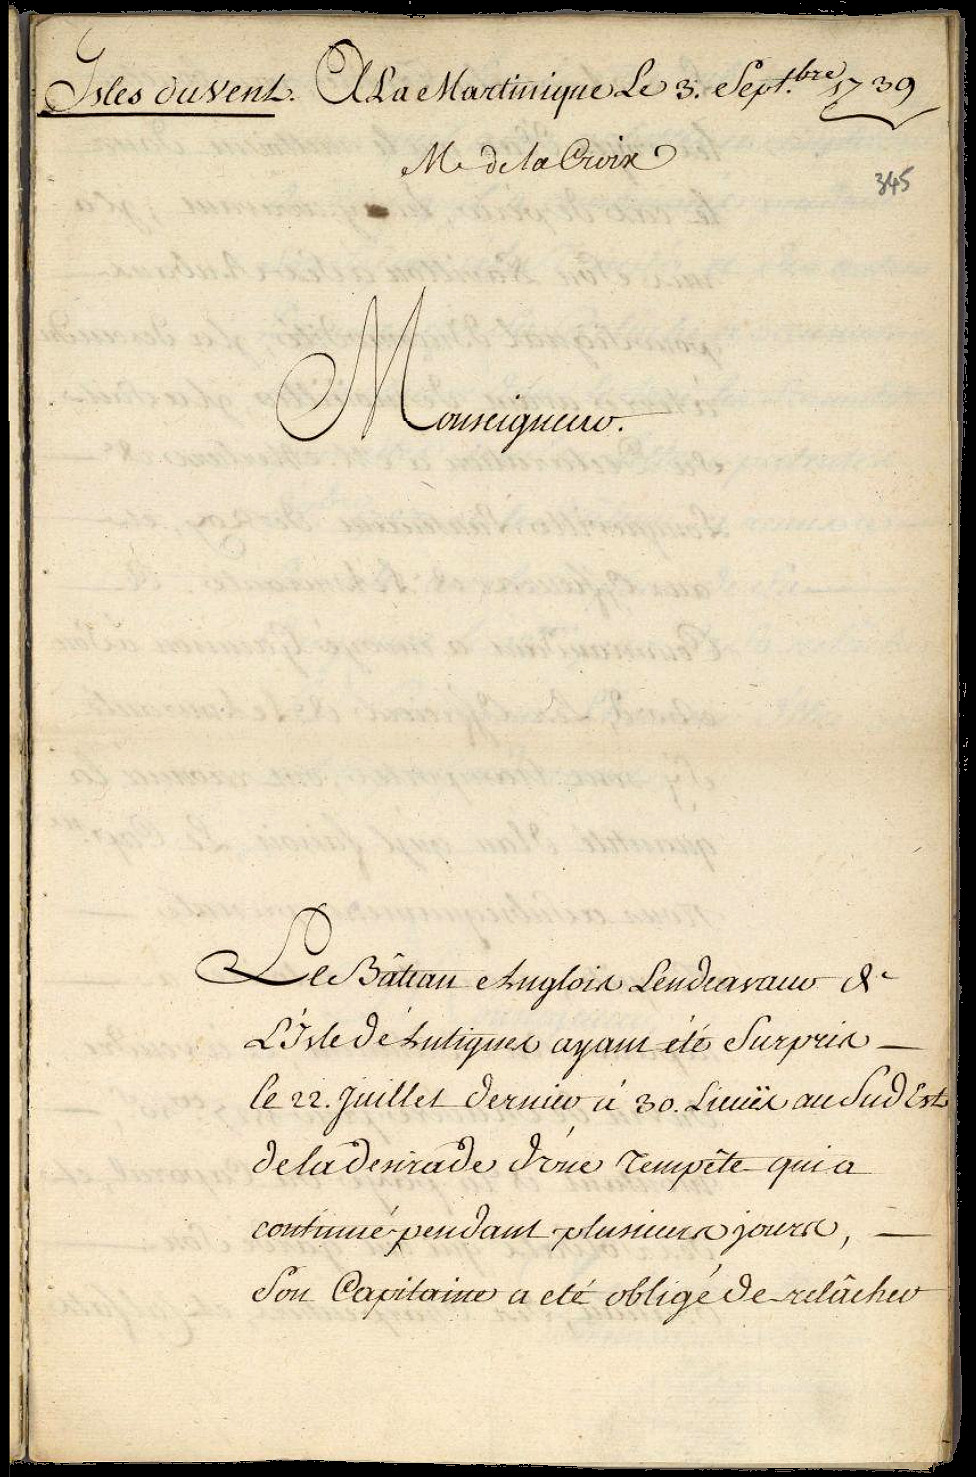 Isles du Vent. A La Martinique Le 3. Sept.bre 1739
M. de la Croix
345
Monseigneur.
Le Bâteau Anglois Lendeavaur de
L'Isle d'Antigues ayant été Surpris
le 22. Juillet dernier à 30. Lieuës au Sud Est
de la desirade d'une Tempête qui a
continué pendant plusieurs jours,
Son Capitaine a eté obligé de relâcher